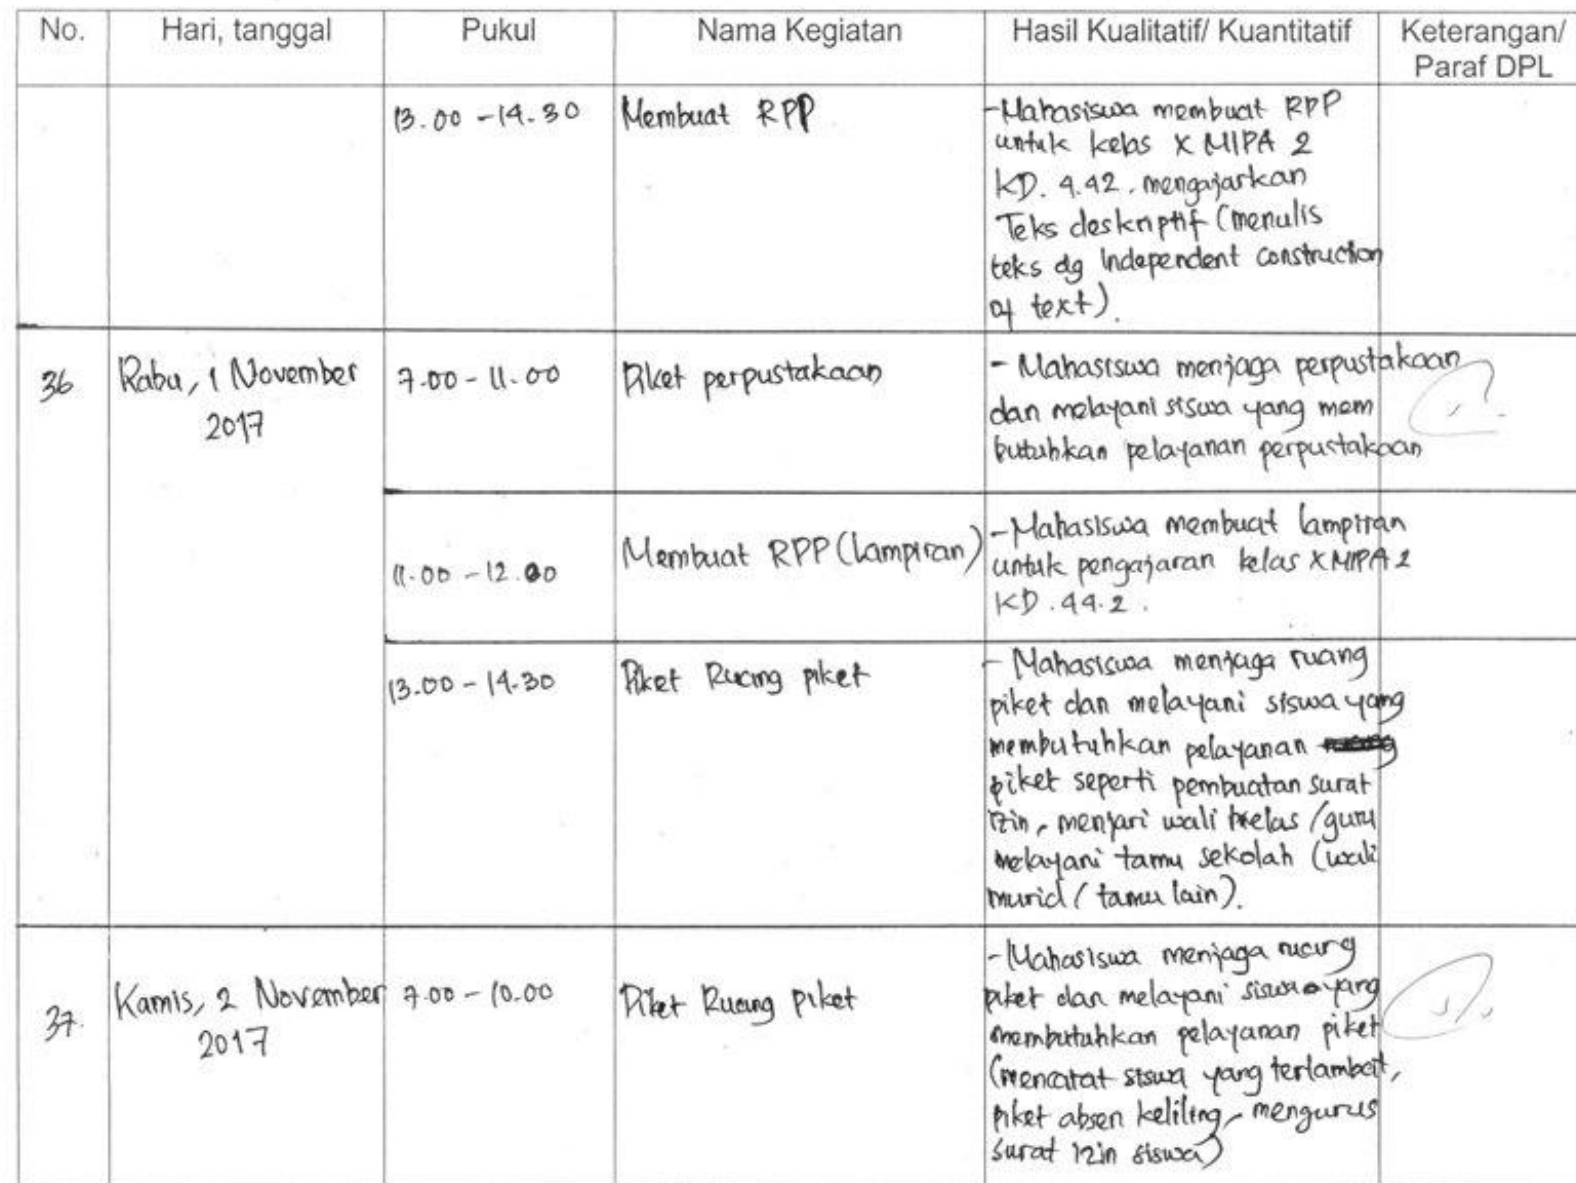 No. Hari, tanggal Pukul Nama Kegiatan Hasil Kualitatif/ Kuantitatif Keterangan/
Paraf DPL
13.00 - 14.30 Membuat RPP -Mahasiswa membuat RPP
untuk kelas X MIPA 2
KD. 4.42. mengajarkan
Teks deskriptif (menulis
teks dg Independent construction
of text).
36 Rabu, 1 November 7.00 - 11.00 Piket perpustakaan - Mahasiswa menjaga perpustakaan
2017 dan melayani siswa yang mem
butuhkan pelayanan perpustakaan
11.00 - 12.00 Membuat RPP (Lampiran) -Mahasiswa membuat lampiran
untuk pengajaran kelas X MIPA 2
KD. 44.2.
13.00 - 14.30 Piket Ruang piket - Mahasiswa menjaga ruang
piket dan melayani siswa yang
membutuhkan pelayanan
piket seperti pembuatan surat
izin, menjari wali kelas /guru
melayani tamu sekolah (wali
murid / tamu lain).
37. Kamis, 2 November 7.00 - 10.00 Piket Ruang piket -Mahasiswa menjaga ruang
2017 piket dan melayani siswa yang
membutuhkan pelayanan piket
(mencatat siswa yang terlambat,
piket absen keliling, mengurus
surat izin siswa)